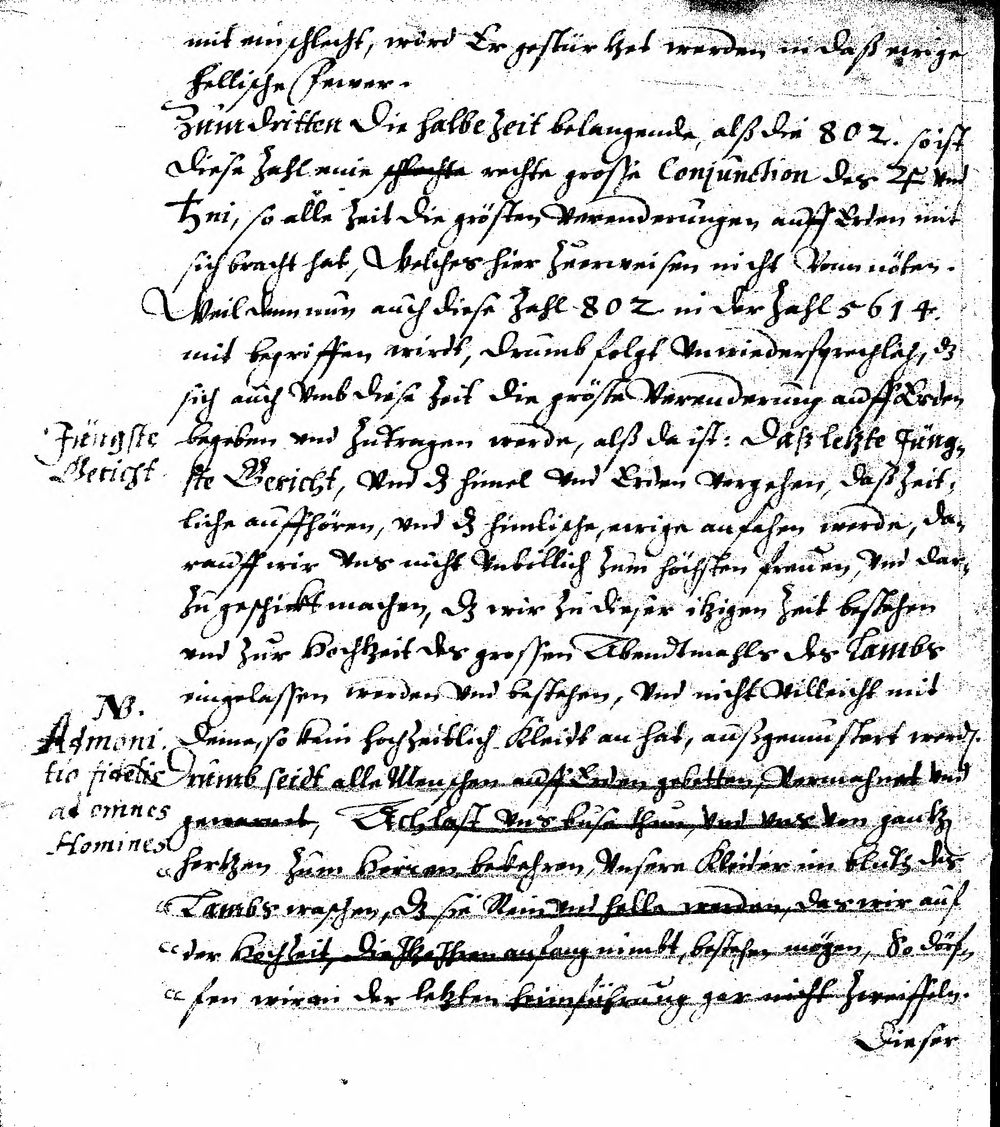 mit einschlecht, wird Er gestürtzet werden in daß ewige
hellische Fewer.
Zum dritten Die halbe Zeit belangende, alß die 802. so ist
diese Zahl eine schlechte rechte grosse Conjunction des ♃ und
♄ni, so alle Zeit die grösten verenderungen auff Erden mit
sich bracht hat, Welches hier zuerweisen nicht Vonnöten.
Weil denn nun auch diese Zahl 802 in der Zahl 5614.
mit begriffen wirdt, drumb folgt unwiedersprechlich, dz
sich auch umb diese Zeit die gröste Verenderung auff Erden
Jüngste
Gericht
begeben und zutragen werde, alß da ist: Daß letzte Jüng-
ste Gericht, Und dz himel und Erden vergehen, daß zeit-
liche auffhören, und dz himlische, ewige anfahen werde, da-
rauff wir uns nicht unbillich zum höchsten freuen, und dar-
zu geschickt machen, dz wir zu dieser itzigen Zeit bestehen
und zur Hochtzeit des grossen Abendtmahls des Lambs
eingelassen werden und bestehen, und nicht villeicht mit
NB.
Admoni
tio fidelis
ad omnes
Homines
deme, so kein hochzeitlich Kleidt an hat, außgemustert werdn.
Drumb seidt alle Menschen auff Erden gebetten, vermahnet und
gewarnet, Ach last uns busse thun, und uns von gantz
hertzen zum Herren bekehren, unsere Kleider im blutz des
Lambs waschen, dz sie Rein und helle werden, das wir auf
der Hochzeit, die anfang nimbt, bestehen mögen, So dörf-
fen wir an der letzten heimführung gar nicht zweiffeln.
Dieser